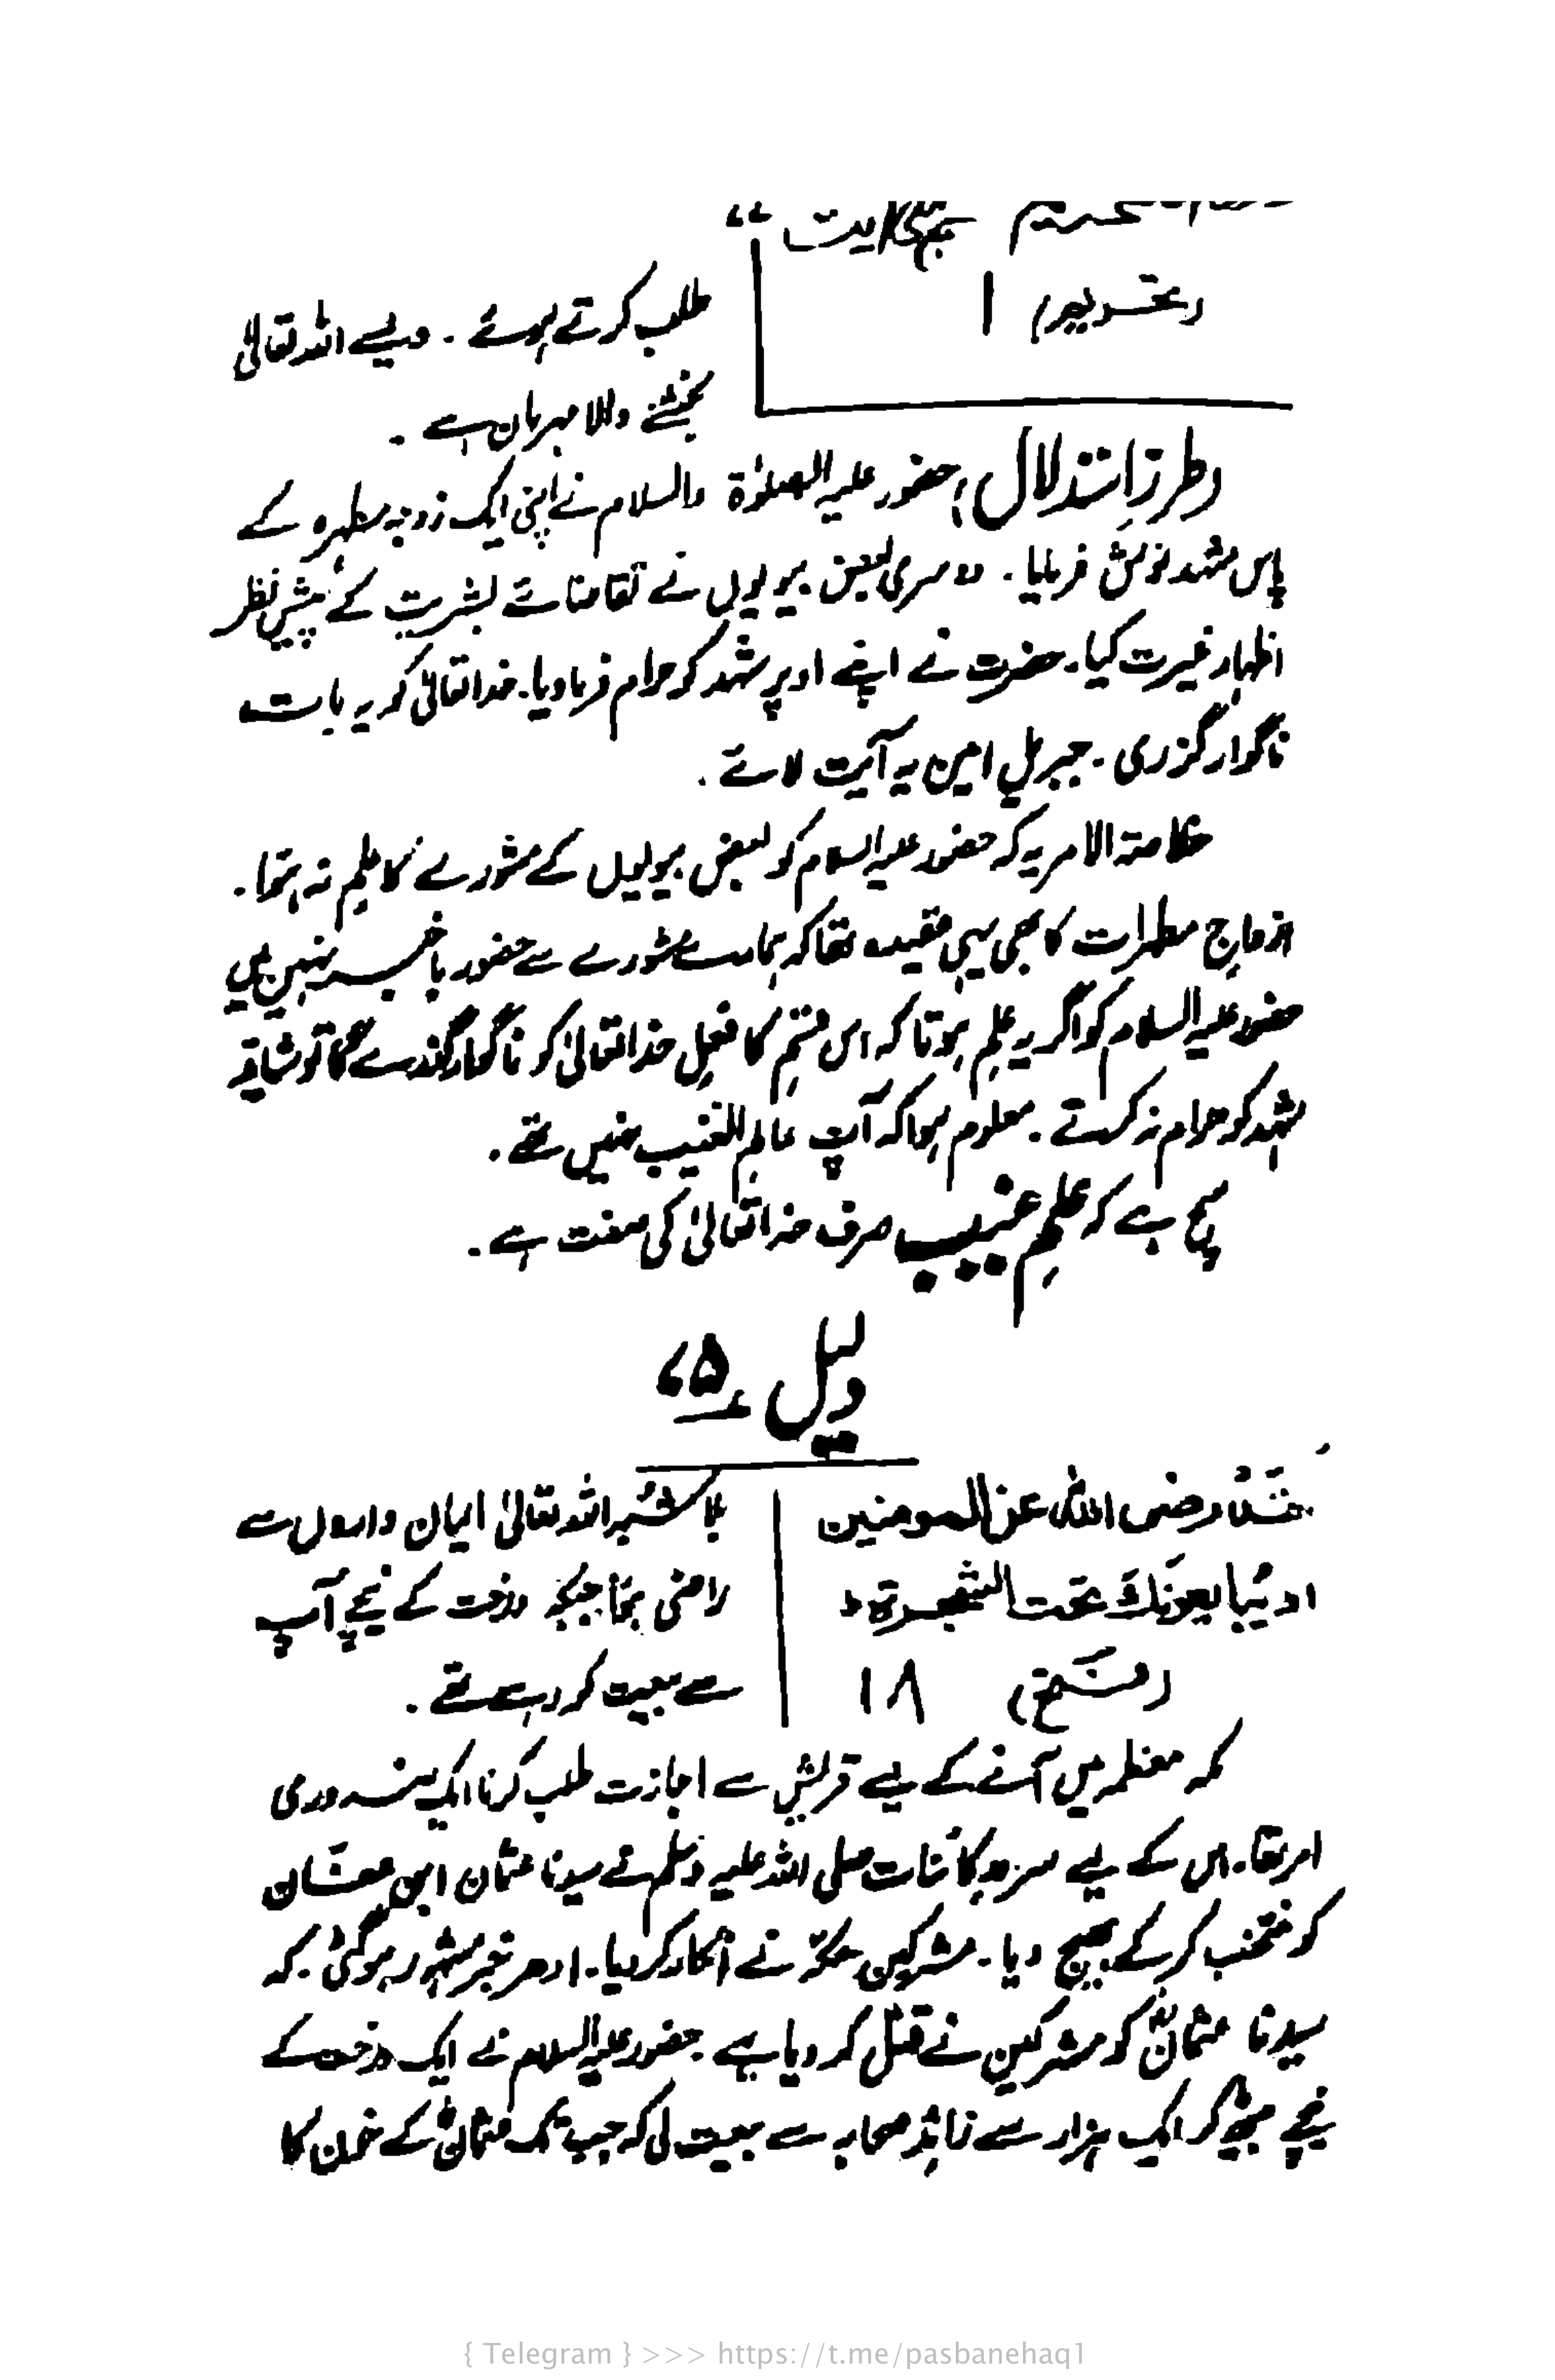 (تحریم) ۱
طلب کرتے ہوئے ۔ ویسے اللہ تعالیٰ
بخشنے والا مہربان ہے ۔
(طرزِ استدلال) حضور علیہ الصلوٰۃ والسلام نے اپنی ایک زوجہ مطہرہ کے
پاس شہد نوش فرمایا ۔ دوسری بعض بیویوں نے تقاضائے بشریت کے پیشِ نظر
اظہارِ غیرت کیا ۔ حضرت نے اپنے اوپر شہد کو حرام فرما دیا ۔ خدا تعالیٰ کو یہ بات
ناگوار گزری ۔ جبریلِ امین یہ آیت لائے ۔
خلاصۃ الامر یہ کہ حضور علیہ السلام کو بعض بیویوں کے مشورے کا علم نہ ہوا ۔
ازواجِ مطہرات کا بھی یہی عقیدہ تھا کہ ہمارے مشورے سے حضور باخبر نہیں ہیں
حضور علیہ السلام کو اگر یہ علم ہوتا کہ اس قسم کا فعل خدا تعالیٰ کو ناگوار گذرے گا تو شاید
شہد کو حرام نہ کرتے ۔ معلوم ہوا کہ آپ عالم الغیب نہیں تھے ۔
سچ ہے کہ علمِ غیب صرف خدا تعالیٰ کی صفت ہے ۔
دلیل
لقد رضی اللہ عن المومنین
اذ یبایعونک تحت الشجرۃ
(فتح) ۱۸
بلا شبہ اللہ تعالیٰ ایمان والوں سے
راضی ہوا جبکہ درخت کے نیچے آپ
سے بیعت کر رہے تھے ۔
مکہ معظمہ میں آنے کے لیے قریش سے اجازت طلب کرنا ایک ضروری
امر تھا ۔ اس کے لیے سرورِ کائنات صلی اللہ علیہ وسلم نے سیدنا عثمان ابن عفان
کو منتخب کر کے بھیج دیا ۔ مشرکین مکہ نے انکار کر دیا ۔ ادھر خبر مشہور ہو گئی کہ
سیدنا عثمانؓ کو مشرکین نے قتل کر دیا ہے ۔ حضور علیہ السلام نے ایک درخت کے
نیچے بیٹھ کر ایک ہزار سے زائد صحابہ سے بیعت لی کہ جب تک عثمانؓ کے خون کا
{ Telegram } >>> https://t.me/pasbanehaq1